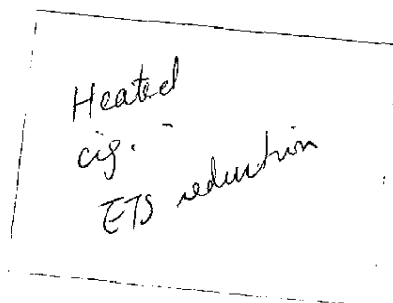 Heated
cig. -
ETS reduction